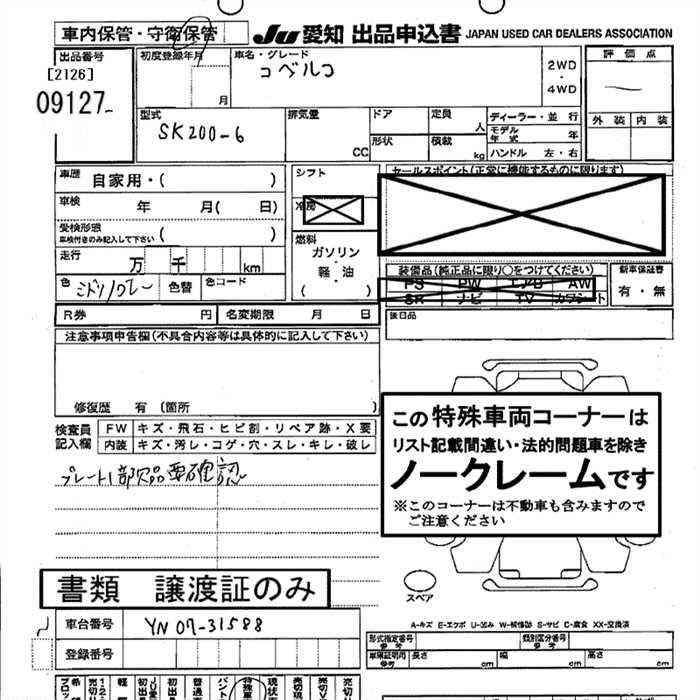 車内保管・守衛保管
JU 愛知 出品申込書 JAPAN USED CAR DEALERS ASSOCIATION
出品番号
[2126]
09127
初度登録年月
月
車名・グレード
コベルコ
2WD
・
4WD
評価点
外装 内装
型式
SK200-6
排気量
CC
ドア
形状
定員
人
積載
kg
ディーラー・並行
モデル年式 年
ハンドル 左・右
車歴 自家用・( )
車検 年 月( 日)
受検形態
車検付きのみ記入して下さい ( )
走行 万 千 km
色 ミドリ/グレー 色替 色コード
シフト
冷房
燃料
ガソリン
・
軽・油
( )
セールスポイント(正常に機能するものに限ります)
装備品(純正品に限り○をつけてください)
PS PW エアB AW
SR ナビ TV カワシート
新車保証書
有・無
後日品
R券 円 名変期限 月 日
注意事項申告欄(不具合内容等は具体的に記入して下さい)
修復歴 有(箇所 )
検査員記入欄
FW キズ・飛石・ヒビ割・リペア跡・X要
内装 キズ・汚レ・コゲ・穴・スレ・キレ・破レ
プレート1部欠品要確認
この特殊車両コーナーは
リスト記載間違い・法的問題車を除き
ノークレームです
※このコーナーは不動車も含みますので
ご注意ください
書類 譲渡証のみ
スペア
A-キズ E-エクボ U-凹み W-補修跡 S-サビ C-腐食 XX-交換済
車台番号 YN07-31588
登録番号
形式指定番号
参考
類別区分番号
参考
車庫証明用
参考
長さ cm 幅 cm 高さ cm